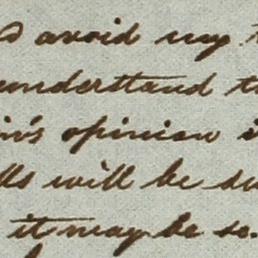 avoid my
understand
opinion
will be
it may be so.